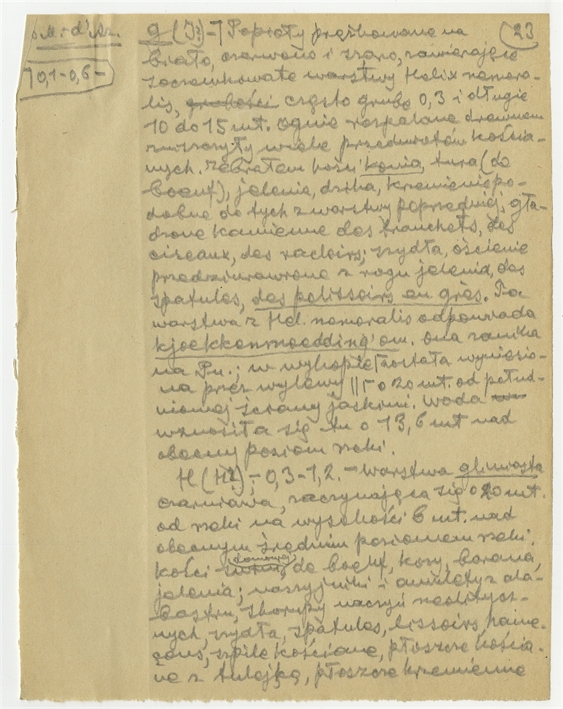 23
g (J?) - Popioły prążkowane na
biało, czerwono i szaro, zawierające
soczewkowate warstwy Helix nemora-
lis, grubości często grube 0,3 i długie
0,1-0,6-
10 do 15 mt. Ognie rozpalane drewnem
zniszczyły wiele przedmiotów kościa-
nych. Zebrałem kości konia, tura (de
boeuf), jelenia, dzika, krzemienie po-
dobne do tych z warstwy poprzedniej, gła-
dzone kamienne des tranchets, des
ciseaux, des racloirs; szydła, ościenie
przedziurawione z rogu jelenia, des
spatules, des polissoirs en grès. Ta
warstwa z Hel. nemoralis odpowiada
kjoekkenmoedding'om. Ona zanika
na Pn.; w wykopie została wyniesio-
na przez wylewy o 20 mt. od połud-
niowej ściany jaskini. Woda
wznosiła się tu o 13,6 mt nad
obecny poziom rzeki.
H (H?) - 0,3-1,2. - Warstwa gliniasta
czarniawa, zaczynająca się o 20 mt.
od rzeki na wysokości 6 mt. nad
obecnym średnim poziomem rzeki.
Kości domowej de boeuf, kozy, barana,
jelenia; naszyjniki i amulety z ala-
bastru, skorupy naczyń neolitycz-
nych, szydła, spatules, lissoirs,
szpile kościane, płoszcze kościa-
ne z tulejką, płoszcze krzemienne